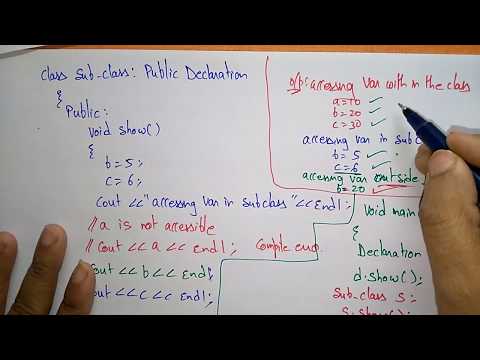 Class Sub-class: Public Declaration
{
Public:
Void Show()
{
b=5;
c=6;
Cout <<"accessing var in subclass"<<Endl;
// a is not accessible
// Cout << a << Endl; Compile error
Cout << b << Endl;
Cout << c << Endl;
o/p: accessing Var with in the class
a=10
b=20
c=30
accessing var in SubC
b=5
c=6
accessing var outside
b=20
Void main
{
Declaration
d.show();
Sub-class S;
S.show();